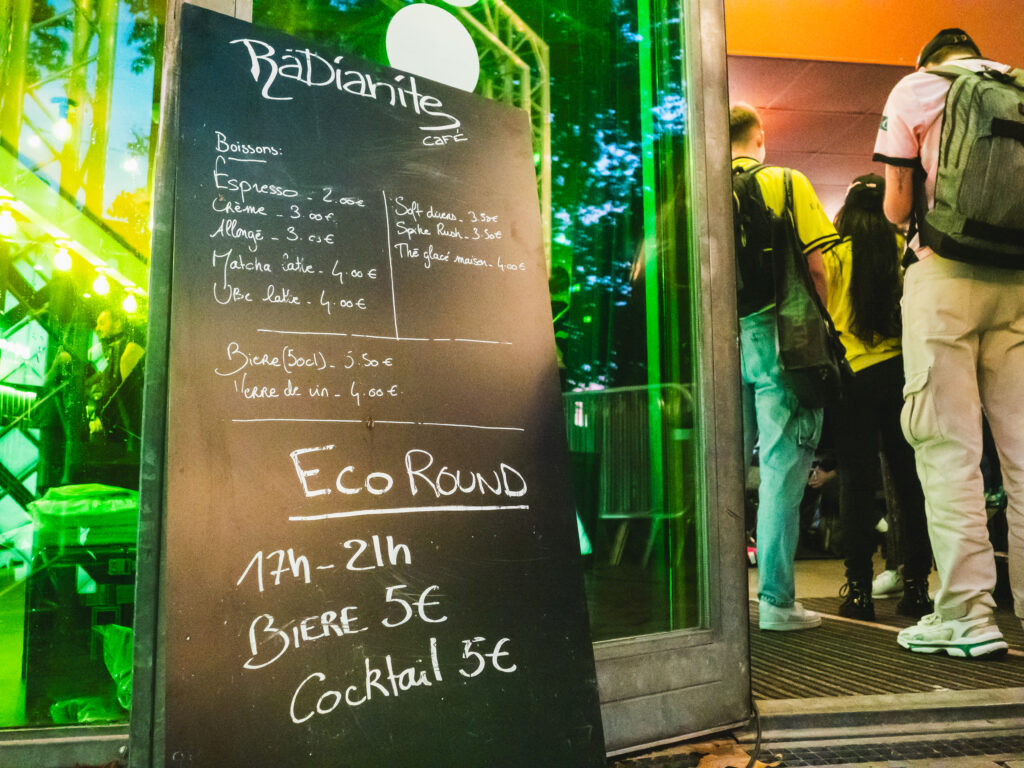 RaDianite
café
Boissons:
Espresso - 2.00€
Crème - 3.00€
Allongé - 3.00€
Matcha latte - 4.00€
Ube latte - 4.00€
Soft divers - 3.50€
Spike Rush - 3.50€
Thé glacé maison - 4.00€
Biere (50cl) - 5.50€
Verre de vin - 4.00€
Eco Round
17h - 21h
Biere 5€
Cocktail 5€